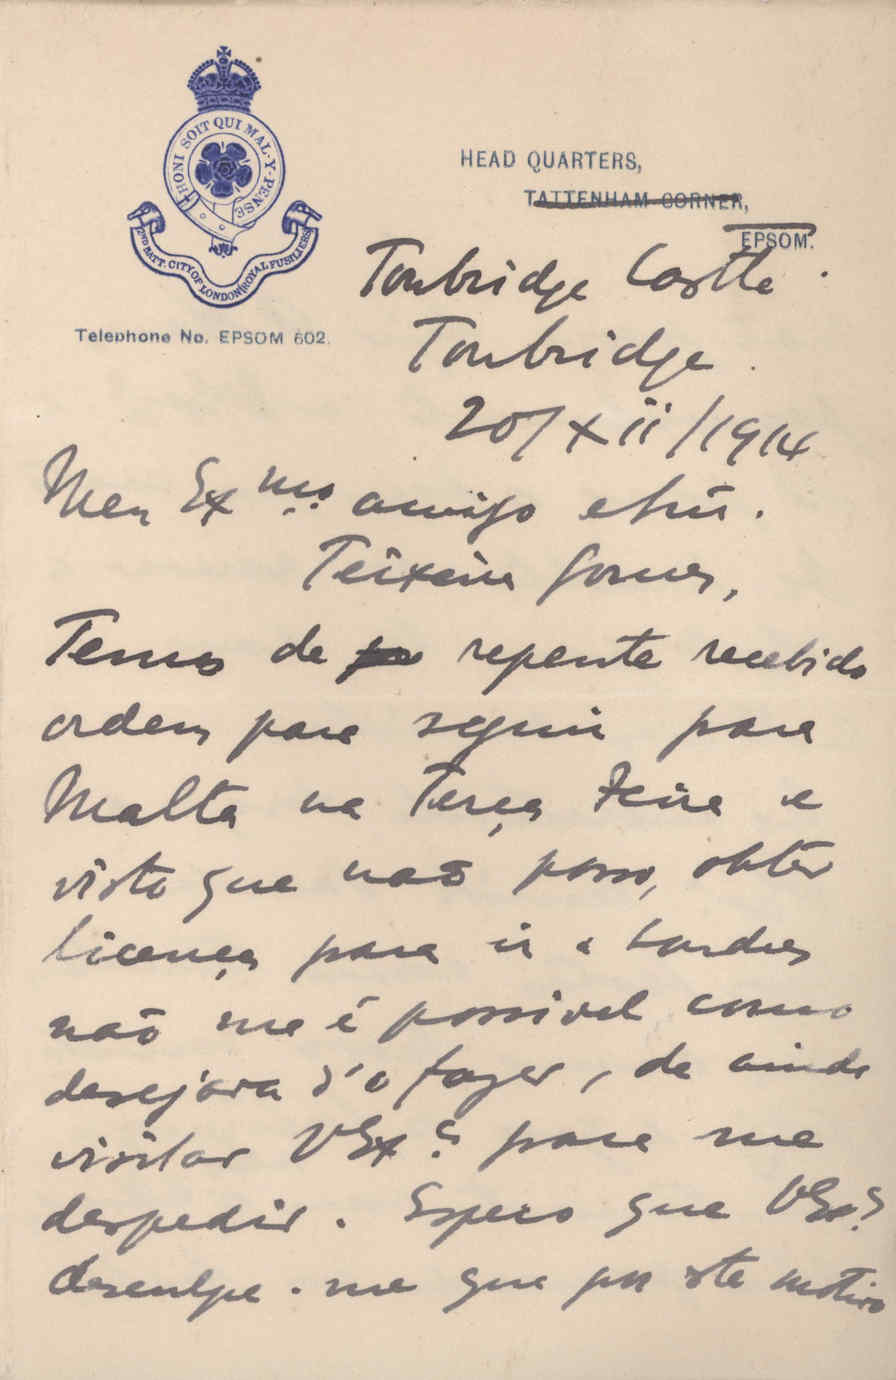 HONI SOIT QUI MAL·Y·PENSE
2ND BATT. CITY OF LONDON ROYAL FUSILIERS
Telephone No. EPSOM 602.
HEAD QUARTERS,
TATTENHAM CORNER,
EPSOM.
Tonbridge Castle
Tonbridge.
20/xii/1914
Meu Exmo. amigo e Snr.
Teixeira Gomes,
Temos de repente recebido
ordem para seguir para
Malta na Terça Feira e
visto que naō posso, obter
licença para ir a Londres
naō me é possivel como
desejava d'o fazer, de ainda
visitar VExa. para me
despedir. Espero que VExa.
desculpe-me que por este motivo